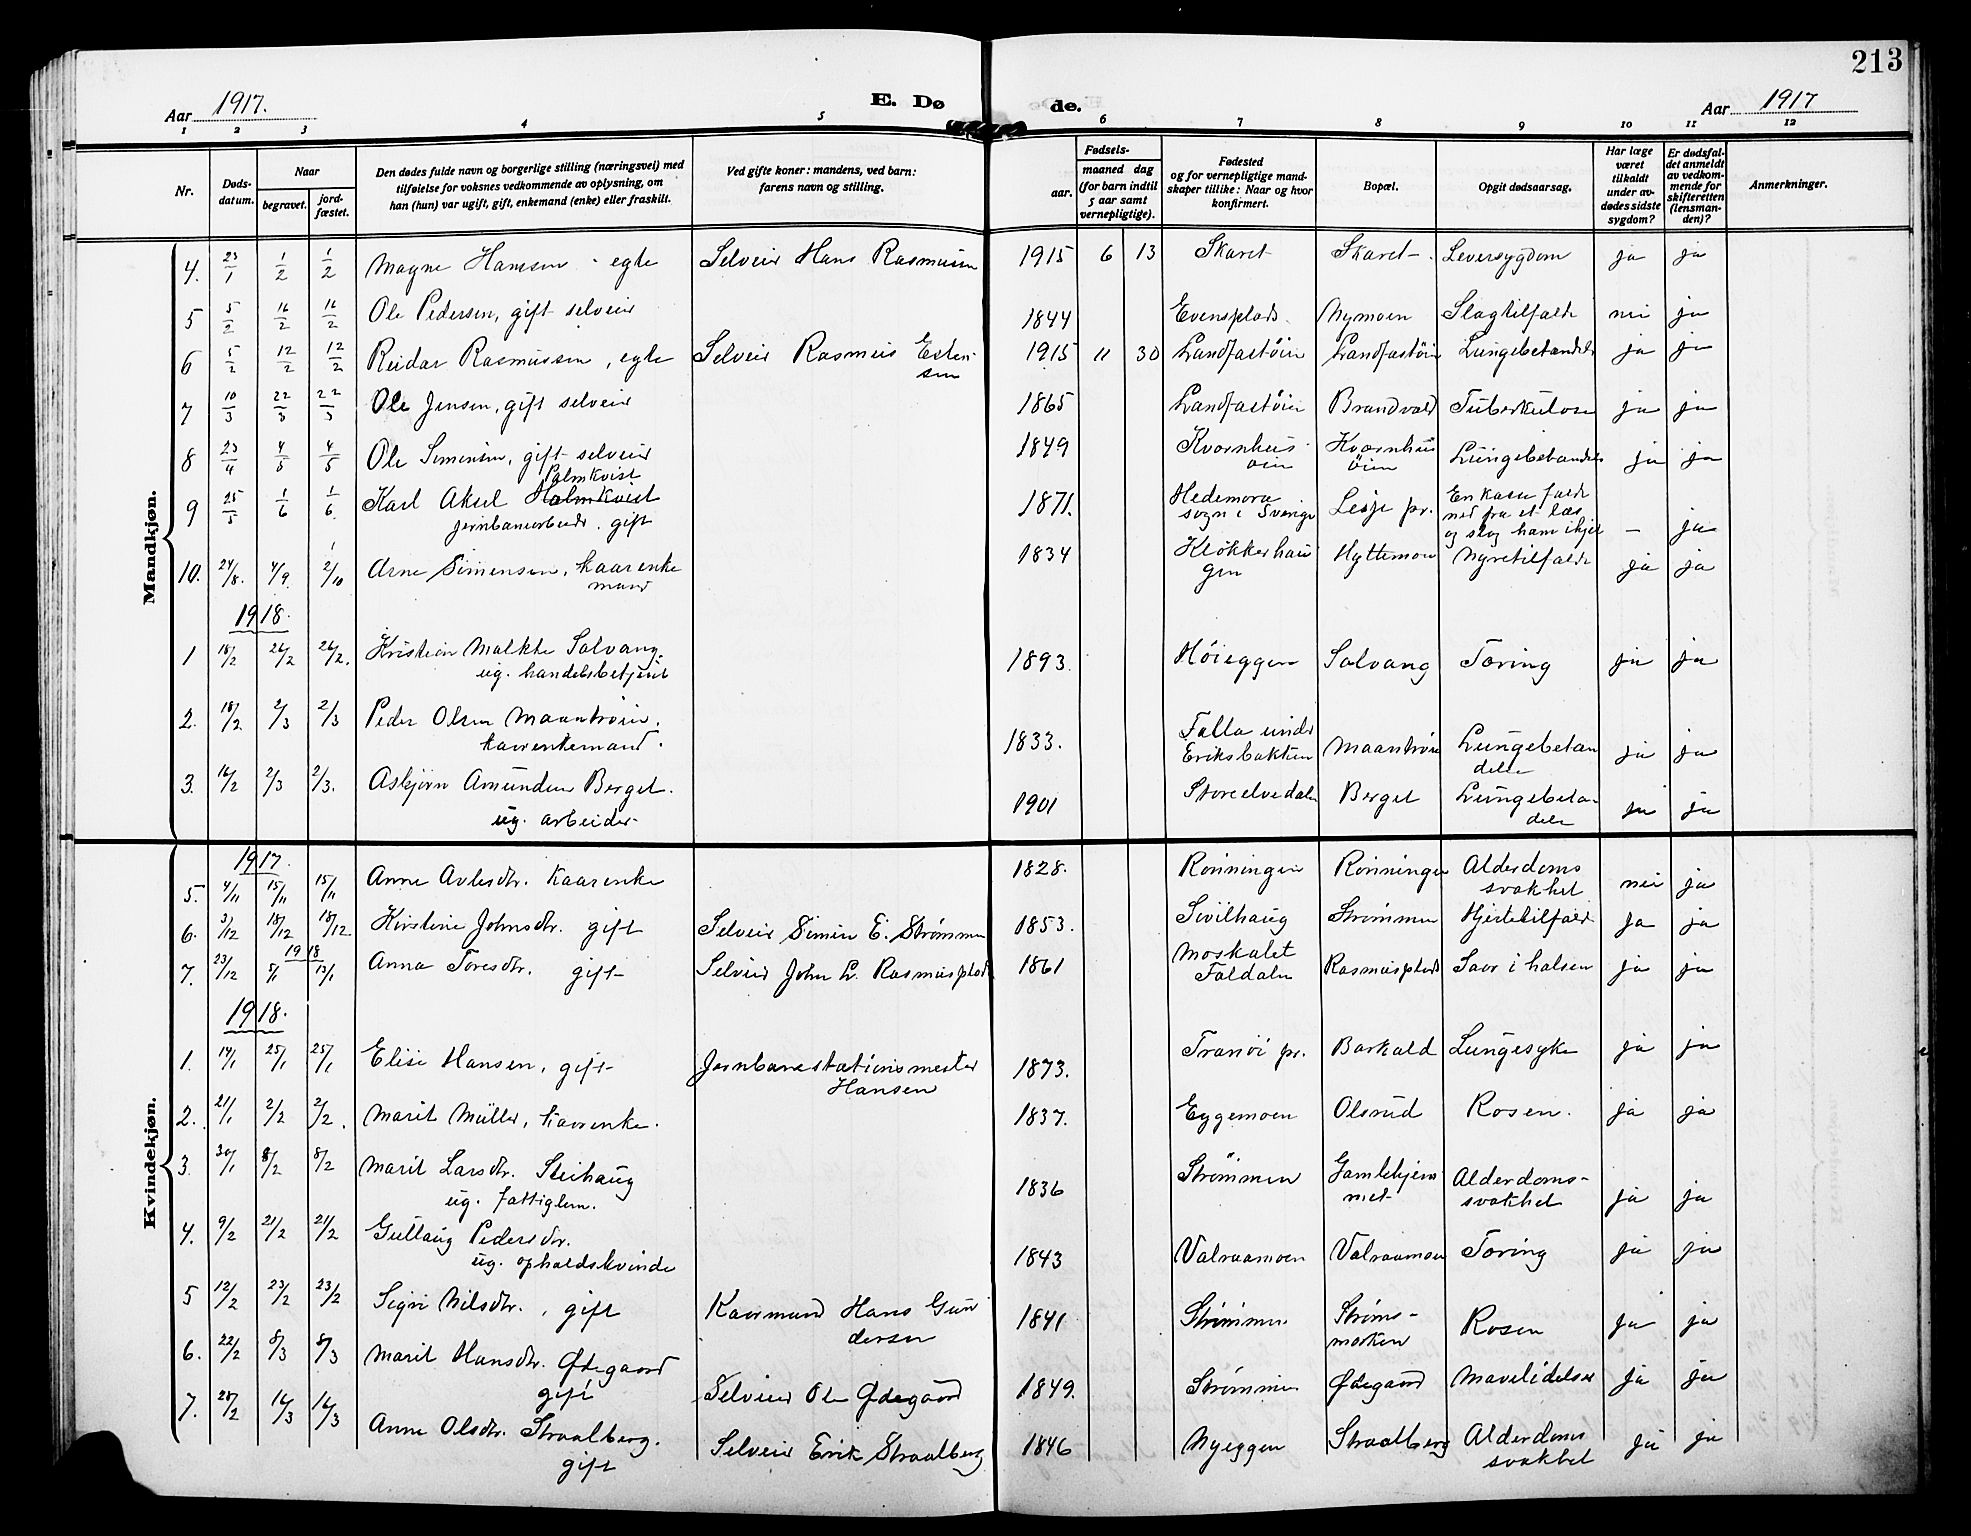 213
Aar 1917. E. Dø de. Aar 1917
1 2 3 4 5 6 7 8 9 10 11 12
Nr. Døds-datum. Naar begravet. jord-fæstet. Den dødes fulde navn og borgerlige stilling (næringsvei) med tilføielse for voksnes vedkommende av oplysning, om han (hun) var ugift, gift, enkemand (enke) eller fraskilt. Ved gifte koner: mandens, ved barn: farens navn og stilling. Fødsels- aar. maaned dag (for barn indtil 5 aar samt vernepligtige). Fødested og for vernepligtige mandskaper tillike: Naar og hvor konfirmert. Bopæl. Opgit dødsaarsag. Har læge været tilkaldt under avdødes sidste sygdom? Er dødsfaldet anmeldt av vedkommende for skifteretten (lensmanden)? Anmerkninger.
Mandkjøn.
4. 23/1 1/2 1/2 Magne Hansen - egte Selveier Hans Rasmusen 1915 6 13 Skaret Skaret Leversygdom ja ja
5 5/2 16/2 16/2 Ole Pedersen, gift selveier 1844 Evensplads Nymoen Slagtilfælde nei ja
6 5/2 12/2 12/2 Reidar Rasmussen, egte Selveier Rasmus Esten-
sen 1915 11 30 Landfastøien Landfastøien Lungebetændelse ja ja
7 10/3 22/3 22/3 Ole Jensen, gift selveier 1865 Landfastøien Brandvold Tuberkulose ja ja
8 23/4 4/5 4/5 Ole Simensen, gift selveier 1849 Kvornhus
øien Kvornhus
øien Lungebetændelse ja ja
9 25/5 1/6 1/6 Karl Aksel Halmkvist Palmkvist
jernbanearbeider. gift 1871. Hedemora
sogn i Sverige Lesje pr. En kasse faldt
ned fra et læs
og slog ham ihjel - ja
10. 24/8. 4/9. 1/ 2/10 Arne Simensen, kaarenke
mand 1834 Kløkkerhau
gen Hyttemoen Nyretilfælde ja ja
1918.
1 18/2 26/2 26/2. Kristian Malkte Solvang.
ug. handelsbetjent 1893. Høieggen Solvang Tæring ja ja
2. 18/2 2/3 2/3 Peder Olsen Maantrøien.
kaarenkemand. 1833. Falla under
Eriksbakken Maantrøien Lungebetæn
delse ja ja
3. 16/2 2/3 2/3. Asbjørn Amundsen Berget.
ug. arbeider 1901 Storeelvedalen Berget Lungebetæn
delse ja ja
Kvindekjøn.
1917.
5. 4/11 15/11 15/11 Anne Avlesdtr. kaarenke 1828. Rønningen Rønningen Alderdoms
svakhet nei ja
6. 3/12 18/12 18/12 Kirstine Johnsdtr. gift Selveier Simen E. Strømmen 1853. Sivilhaug Strømmen Hjertetilfælde ja ja
1918
7. 23/12 5/1 13/1 Anna Toresdtr. gift Selveier John L. Rasmusplads 1861 Moskalet
Foldalen Rasmusplads Saar i halsen ja ja
1918.
1. 14/1 25/1 25/1 Elise Hansen, gift Jernbanestationsmester
Hansen 1873. Tranöi pr. Barkald Lungesyke ja ja
2. 21/1 2/2 2/2. Marit Müller, kaarenke. 1837. Eggemoen Olsrud Rosen. ja ja
3. 30/1 8/2 8/2 Marit Larsdtr. Steihaug
ug. fattiglem. 1836 Strømmen Gamlehjem
met Alderdoms-
svakhet ja ja
4. 9/2 21/2 21/2 Gullaug Pedersdtr.
ug. opholdskvinde 1843 Valraamoen Valraamoen Tæring ja ja
5 12/2 23/2 23/2 Sigri Nilsdtr., gift Kaarmand Hans Gun
dersen 1841 Strømmen Strøms-
marken Rosen ja ja
6. 22/2 8/3 8/3 Marit Hansdtr. Ødegaard
gift Selveier Ole Ødegaard 1849. Strømmen Ødegaard Mavelidelse ja ja
7. 28/2 16/3 16/3 Anne Olsdtr. Straalberg.
gift Selveier Erik Straalberg 1846 Nyeggen Straalberg Alderdoms
svakhet ja ja